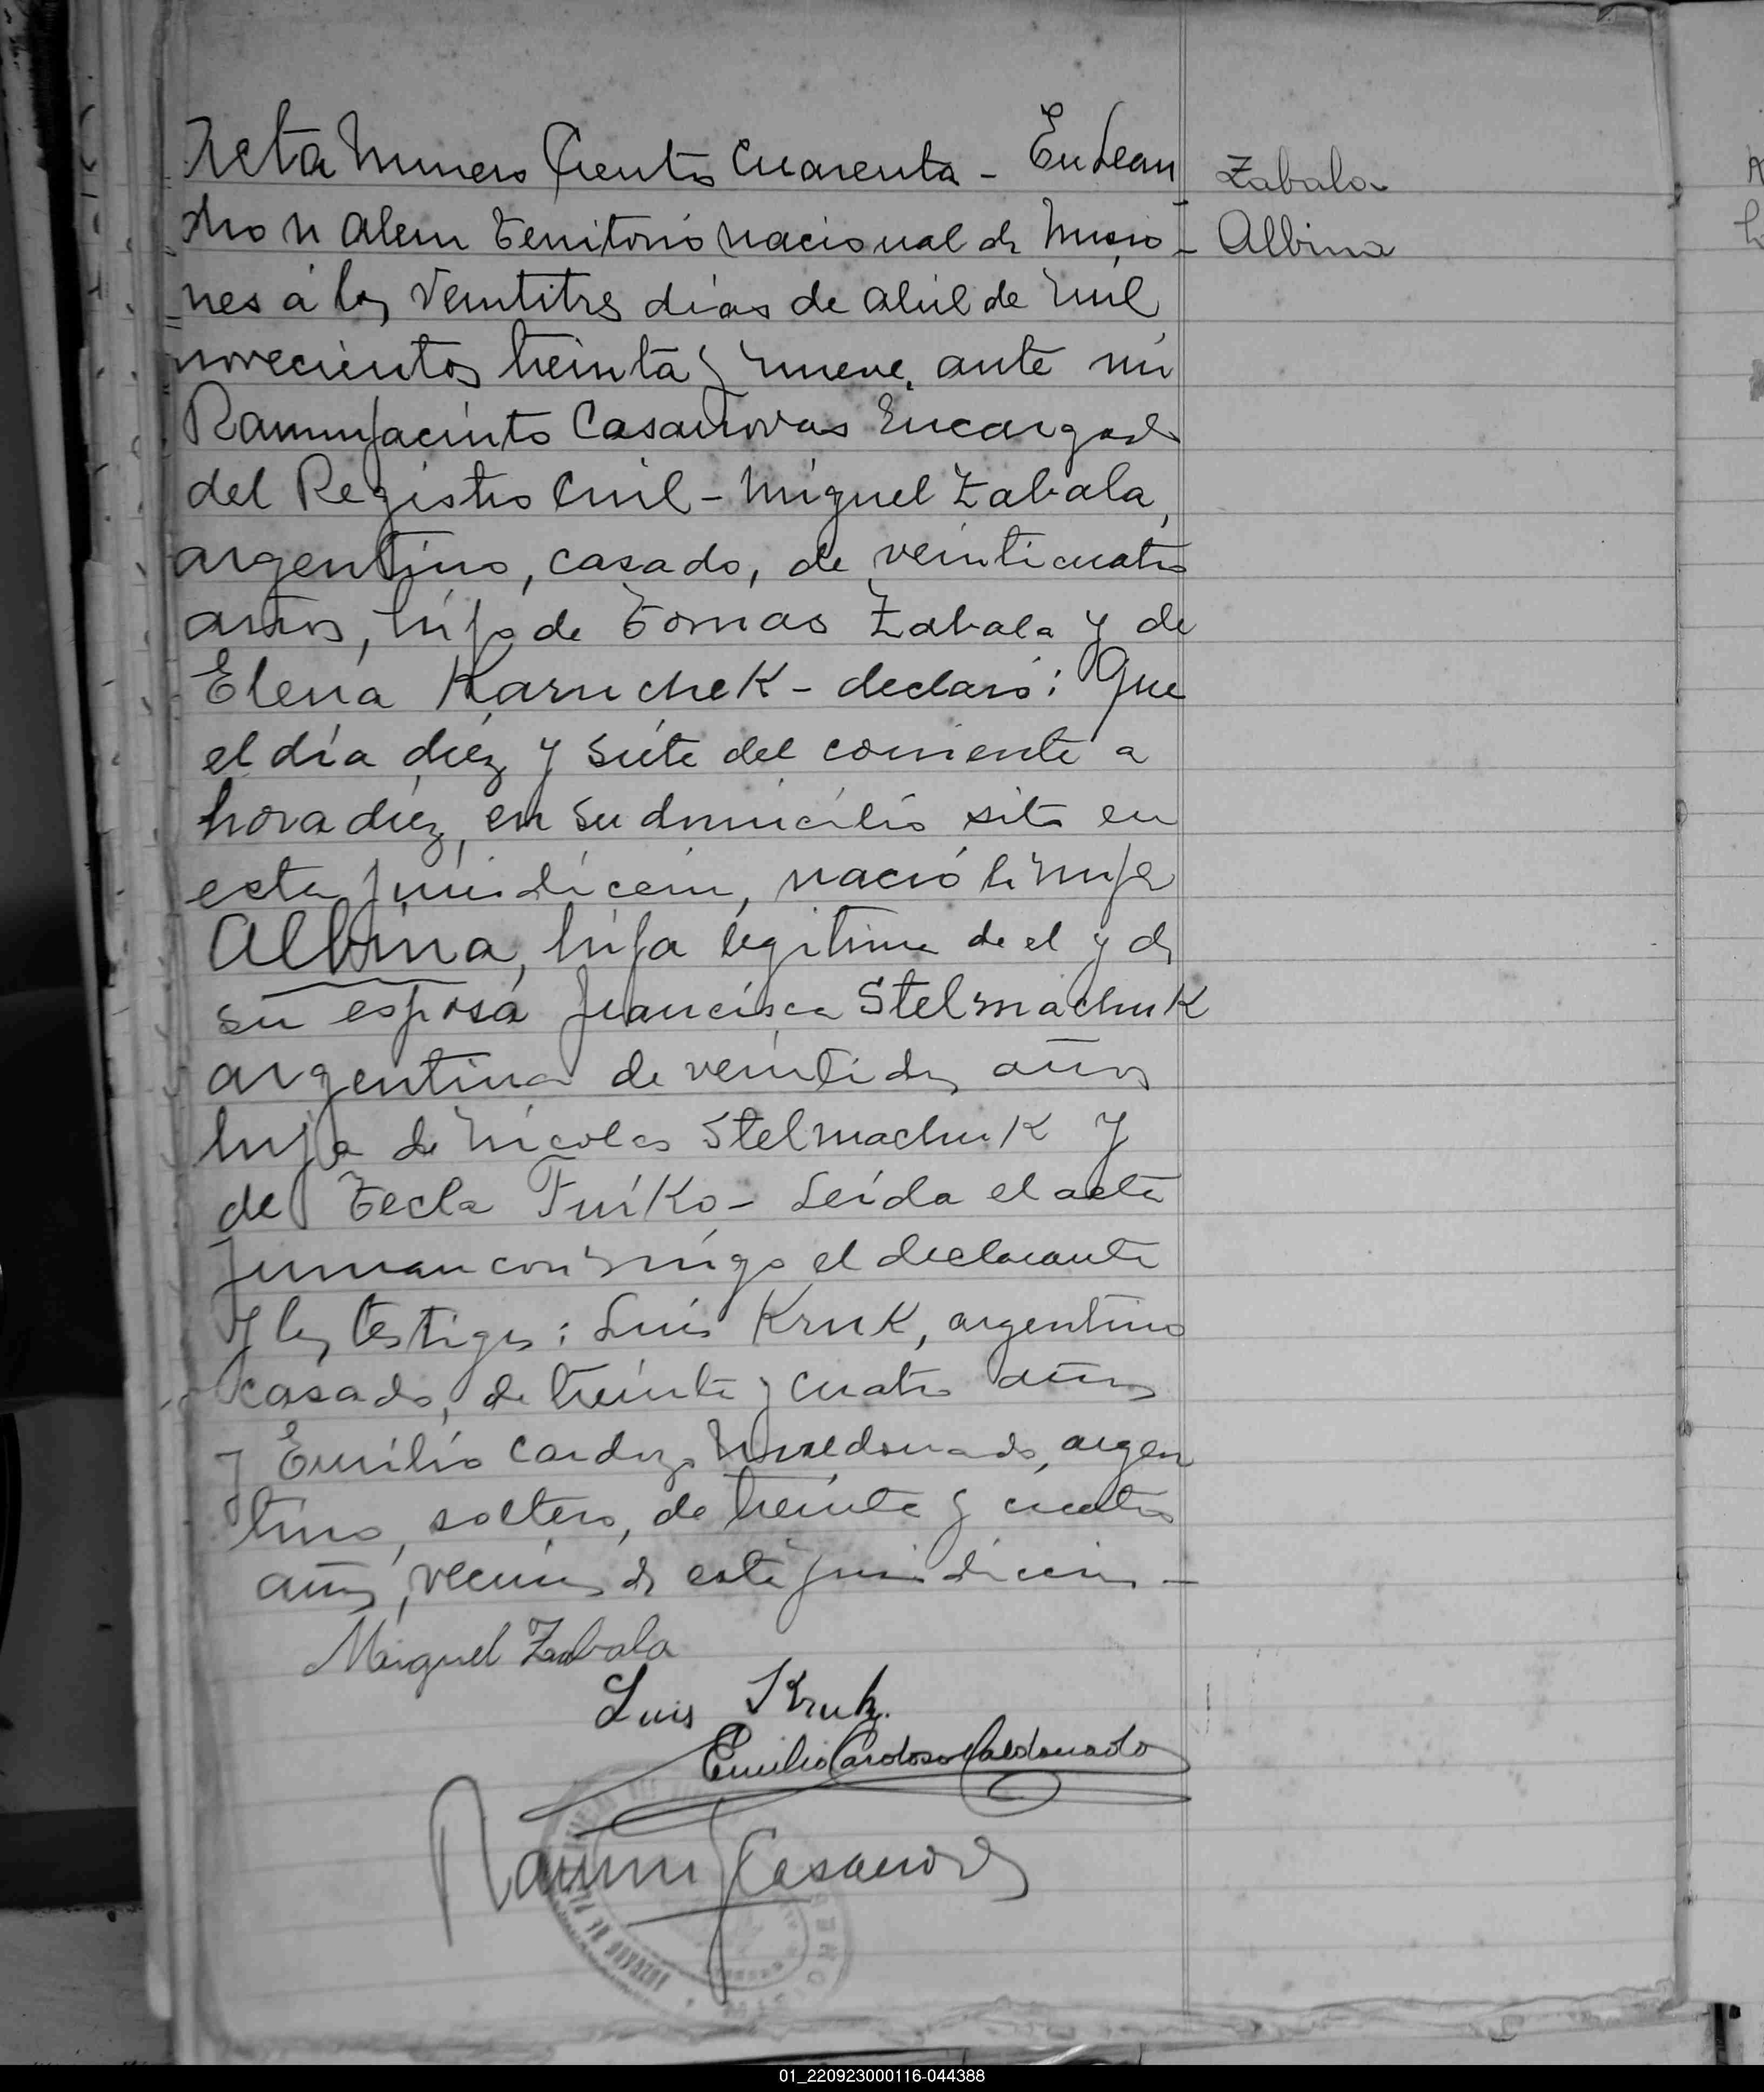 Acta Numero Ciento Cuarenta - En Lean
Zabala
dro N Alem Territorio Nacional de Misio-
Albina
nes á los veintitres dias de abril de mil
novecientos treinta y nueve, ante mi
Ramon Jacinto Casanovas Encargado
del Registro Civil - Miguel Zabala,
argentino, casado, de veinticuatro
años, hijo de Tomas Zabala y de
Elena Karuchek - declaró: Que
el día diez y siete del corriente a
hora diez, en su domicilio sito en
esta juridiccin, nació la niña
Albina, hija legitima de el y de
su esposa Francisca Stelmachuk
argentina de veintidos años
hija de Nicolas Stelmachuk y
de Tecla - Leida el acta
firman conmigo el declarante
y los testigos: Luis Kruk, argentino
casado, de treinta y cuatro años
y Emilio Cardozo Maldonado, argen
tino, soltero, de treinta y cuatro
años, vecinos de esta juridiccion -
Miguel Zabala
Luis Kruk.
Emilio Cardoso Maldonado
Ramon J Casanovas
JUZGADO DE PAZ
01_220923000116-044388